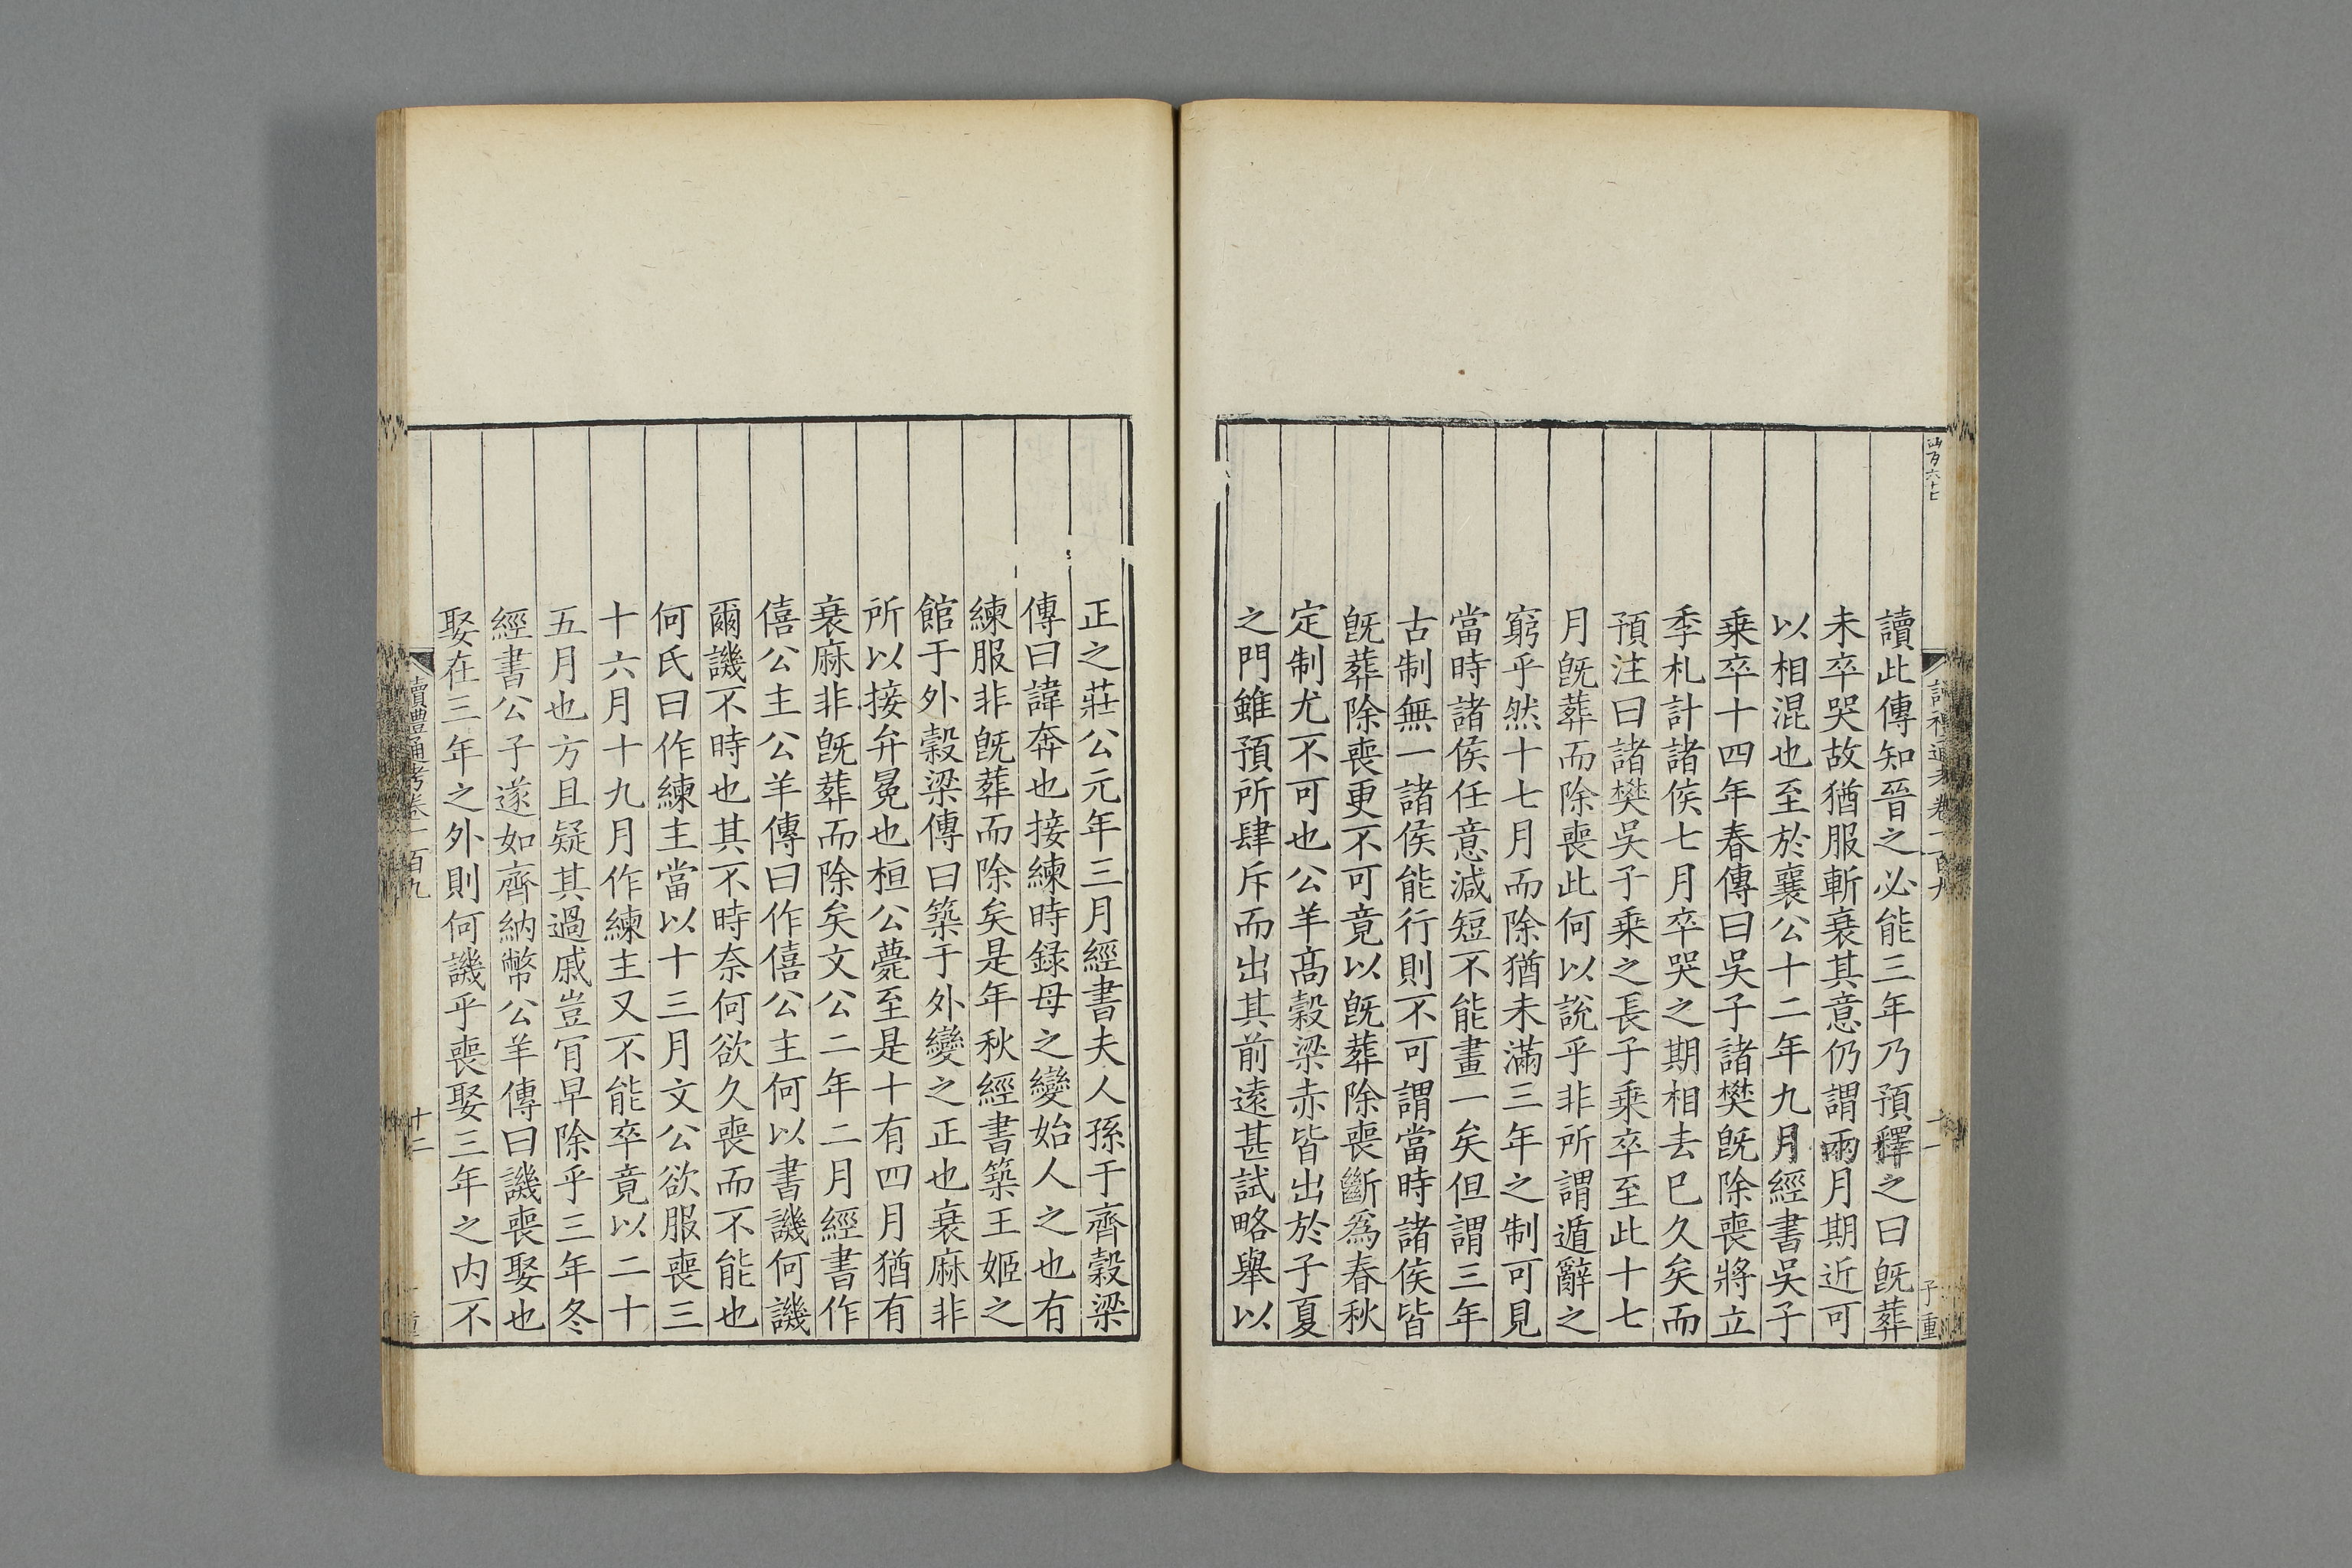 讀此傳知晉之必能三年乃預釋之曰旣葬
未卒哭故猶服斬衰其意仍謂兩月期近可
以相混也至於襄公十二年九月經書吳子
乗卒十四年春傳曰吳子諸樊旣除喪將立
季札計諸侯七月卒哭之期相去巳久矣而
預注曰諸樊吳子乗之長子乗卒至此十七
月旣葬而除喪此何以說乎非所謂遁辭之
窮乎然十七月而除猶未滿三年之制可見
當時諸侯任意減短不能畫一矣但謂三年
古制無一諸侯能行則不可謂當時諸侯皆
旣葬除喪更不可竟以旣葬除喪斷爲春秋
定制尤不可也公羊髙穀梁赤皆出於子夏
之門雖預所肆斥而出其前遠甚試略舉以
正之莊公元年三月經書夫人孫于齊穀梁
傳曰諱奔也接練時録母之變始人之也有
練服非旣葬而除矣是年秋經書築王姬之
館于外穀梁傳曰築于外變之正也衰麻非
所以接弁冕也桓公薨至是十有四月猶有
衰麻非旣葬而除矣文公二年二月經書作
僖公主公羊傳曰作僖公主何以書譏何譏
爾譏不時也其不時奈何欲久喪而不能也
何氏曰作練主當以十三月文公欲服喪三
十六月十九月作練主又不能卒竟以二十
五月也方且疑其過戚豈肎早除乎三年冬
經書公子遂如齊納幣公羊傳曰譏喪娶也
娶在三年之外則何譏乎喪娶三年之内不
讀禮通考卷一百九
十二